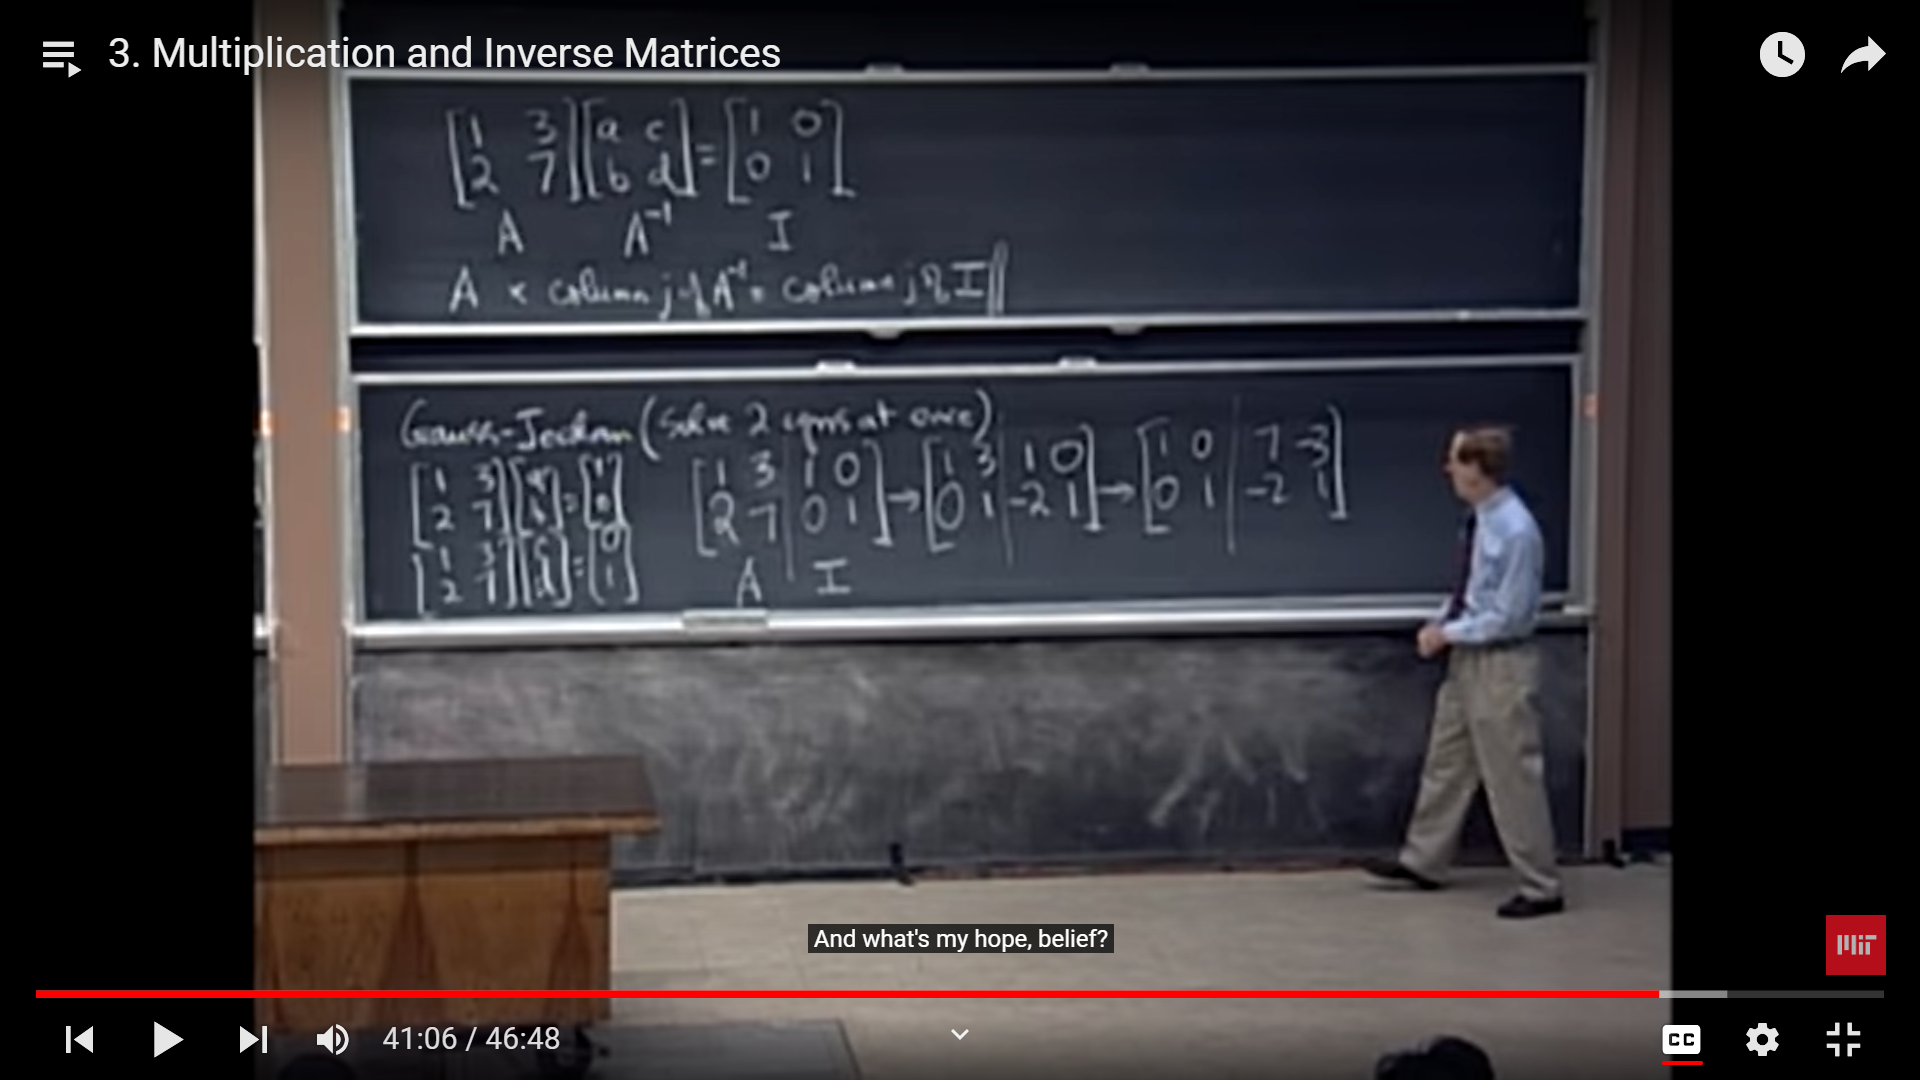 3. Multiplication and Inverse Matrices
[1 3] [a c] = [1 0]
[2 7] [b d]   [0 1]
A A⁻¹ I
A × column j of A⁻¹ = column j of I
Gauss-Jordan (solve 2 eqns at once)
[1 3] [a] = [1]
[2 7] [b]   [0]
[1 3] [c] = [0]
[2 7] [d]   [1]
[1 3 | 1 0] → [1 3 | 1 0] → [1 0 | 7 -3]
[2 7 | 0 1]   [0 1 | -2 1]   [0 1 | -2 1]
A I
And what's my hope, belief?
MIT
41:06 / 46:48
CC